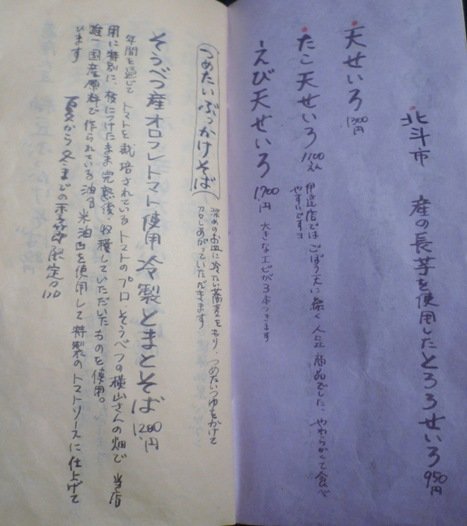 北斗市 産の長芋を使用したとろろせいろ 950円
天せいろ 1300円
たこ天せいろ 1100円
伊達店ではごぼう天に続く人気商品でした、やわらかくて食べ
やすいですョ
えび天せいろ 1,700円 大きなエビが3本つきます
つめたいぶっかけそば
深めのお皿に冷たい蕎麦をもり、つめたいつゆをかけて
めしあがっていただきます
そうべつ産オロフレトマト使用 冷製とまとそば 1200円
年間を通じてトマトを栽培されているトマトのプロ そうべつの横山さんの畑で 当店
用に特別に、枝につけたまま完熟後、収穫していただいたものを使用。
唯一国産原料で作られている油る 米油を使用して特製のトマトソースに仕上げて
います
夏から冬までの季節限定品